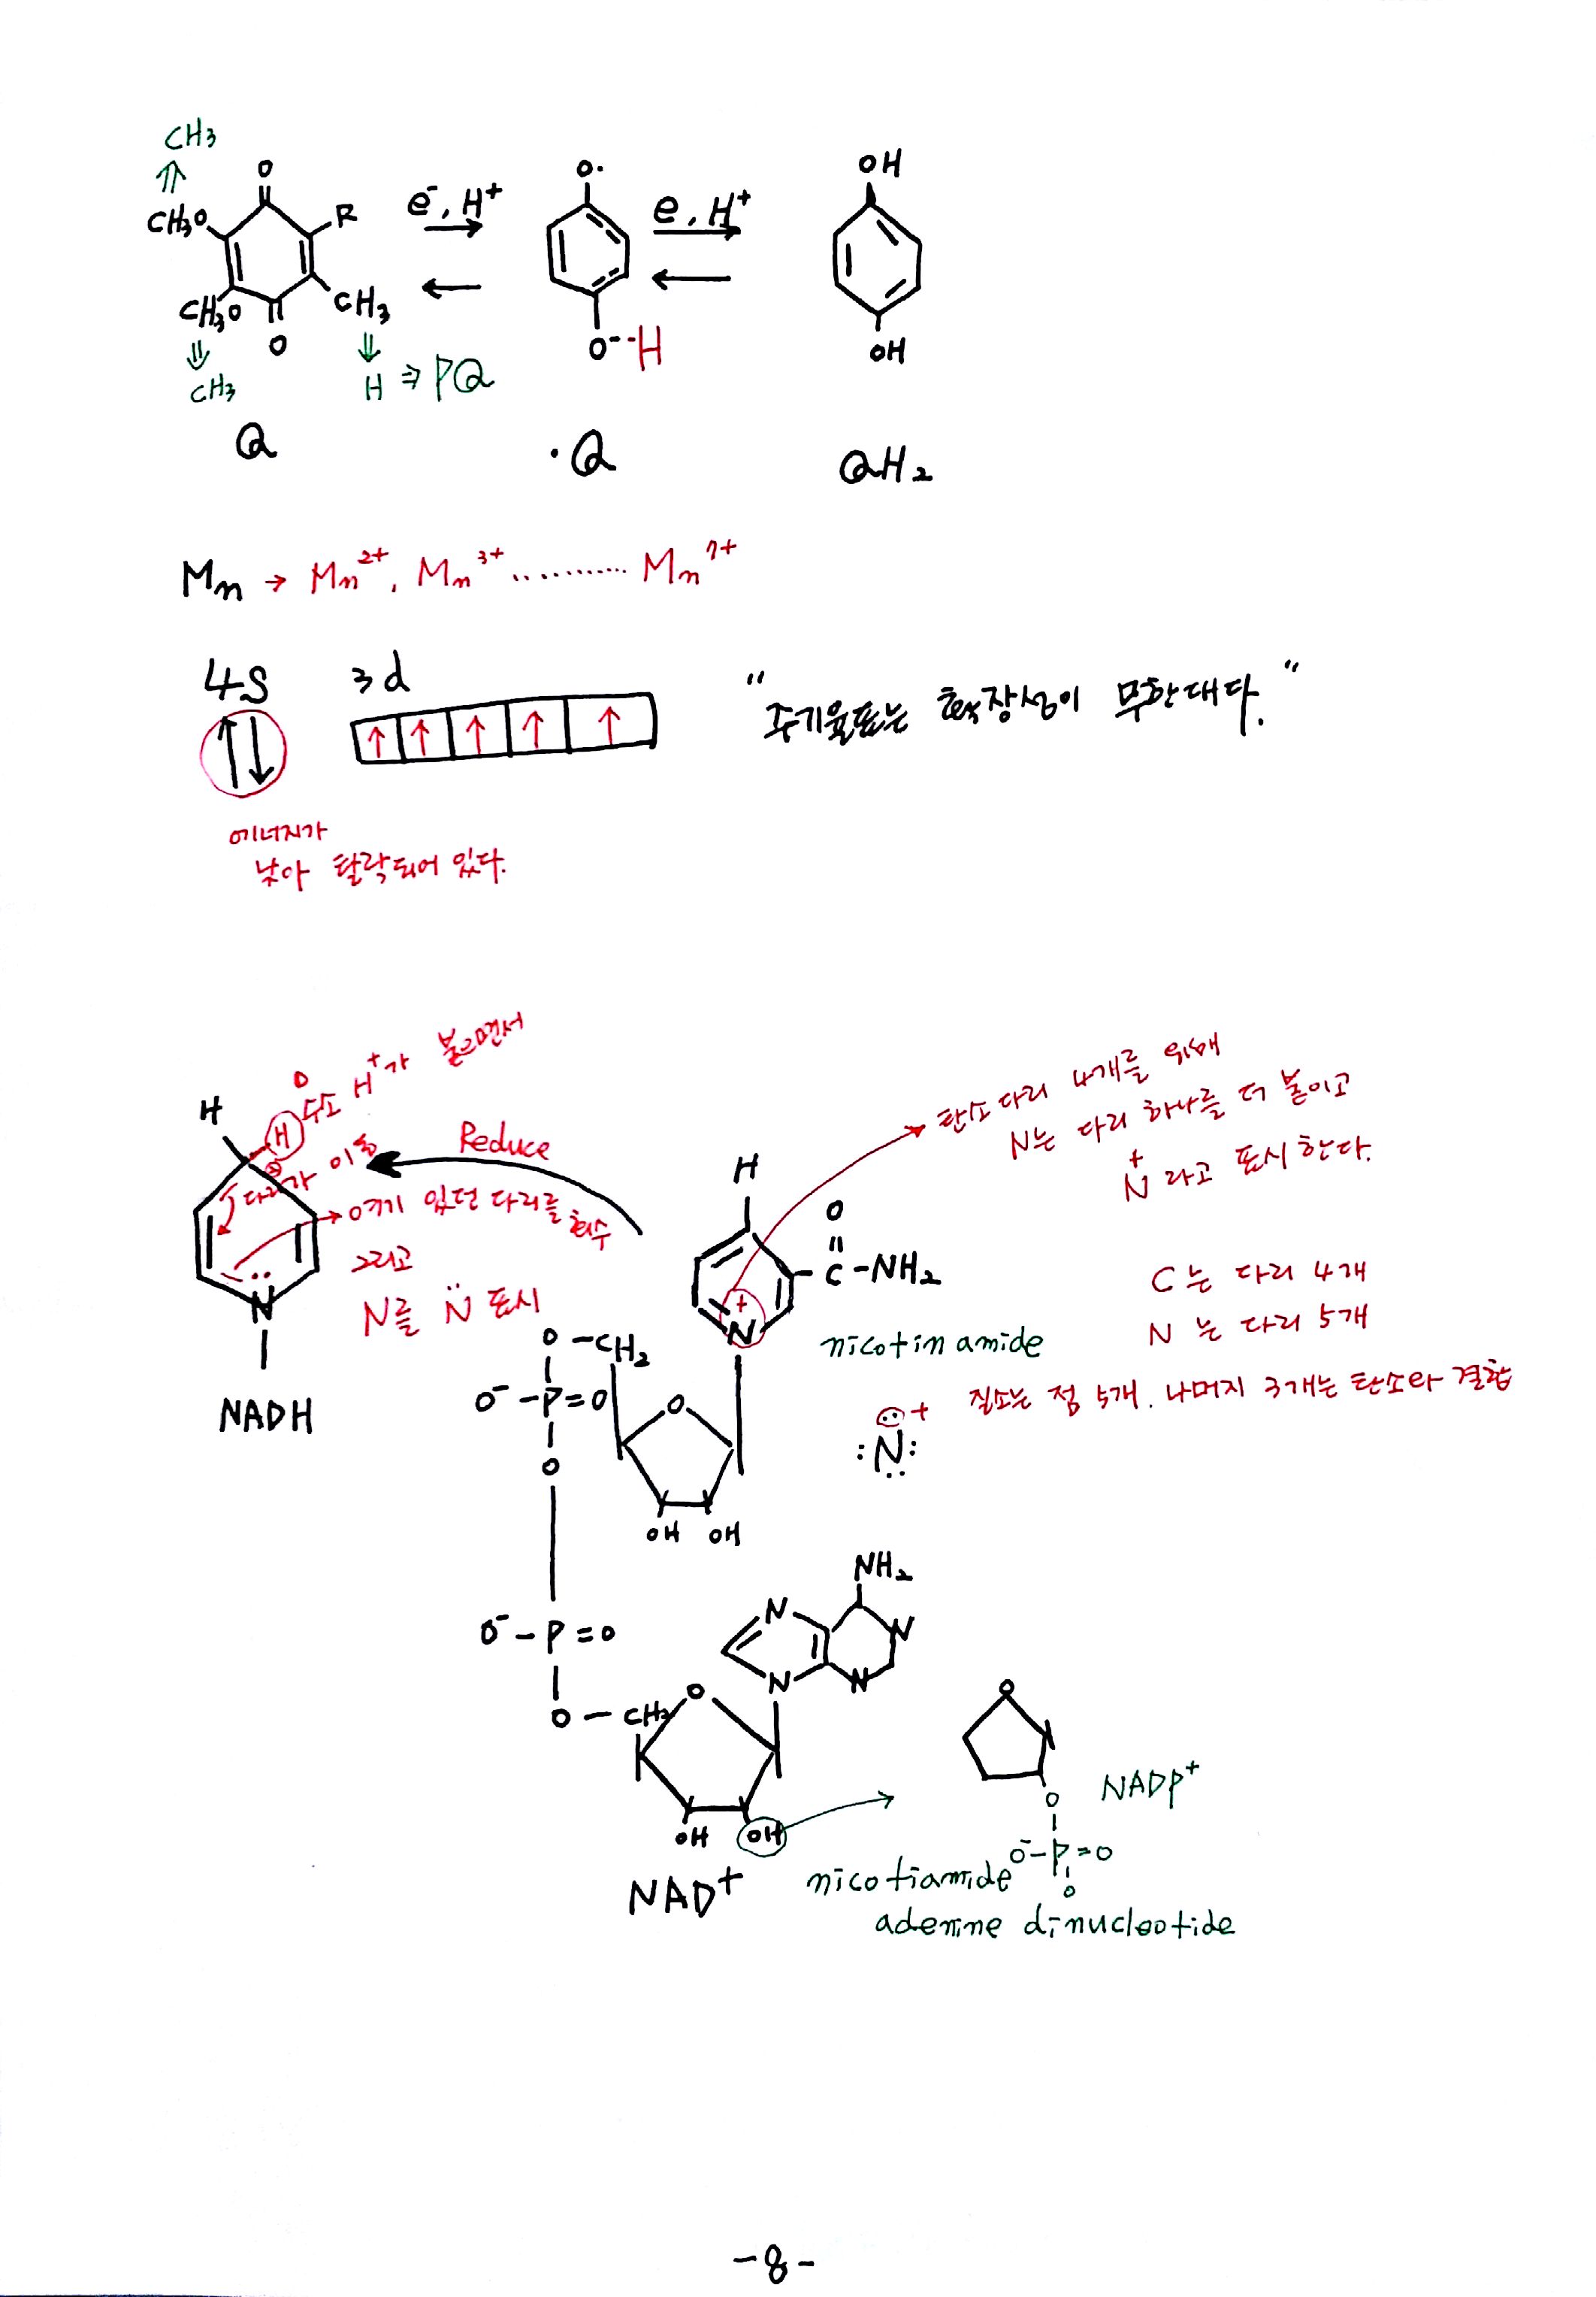 CH3
CH3O
O
R
CH3O
O
CH3
CH3
H ⇒ PQ
Q
e⁻, H⁺
O·
O--H
·Q
e, H⁺
OH
OH
QH₂
Mn → Mn²⁺, Mn³⁺ .......... Mn⁷⁺
4S 3d
"주기율표는 확장성이 무한대다."
에너지가
낮아 탈락되어 있다.
수소 H⁺가 붙으면서
H
H
다리가 이동
Reduce
여기 있던 다리를 회수
그리고
N를 N̈ 표시
N
NADH
탄소 다리 4개를 위해
N는 다리 하나를 더 붙이고
N⁺ 라고 표시한다.
H
O
C-NH₂
N⁺
nicotinamide
C는 다리 4개
N는 다리 5개
질소는 점 5개. 나머지 3개는 탄소와 결합
:N: +
O-CH₂
O⁻-P=O
O
O
OH OH
O⁻-P=O
O-CH₂
O
NH₂
N
N
N
N
OH OH
NAD⁺
O
O
O⁻-P=O
O
NADP⁺
nicotiamide
adenine dinucleotide
-8-